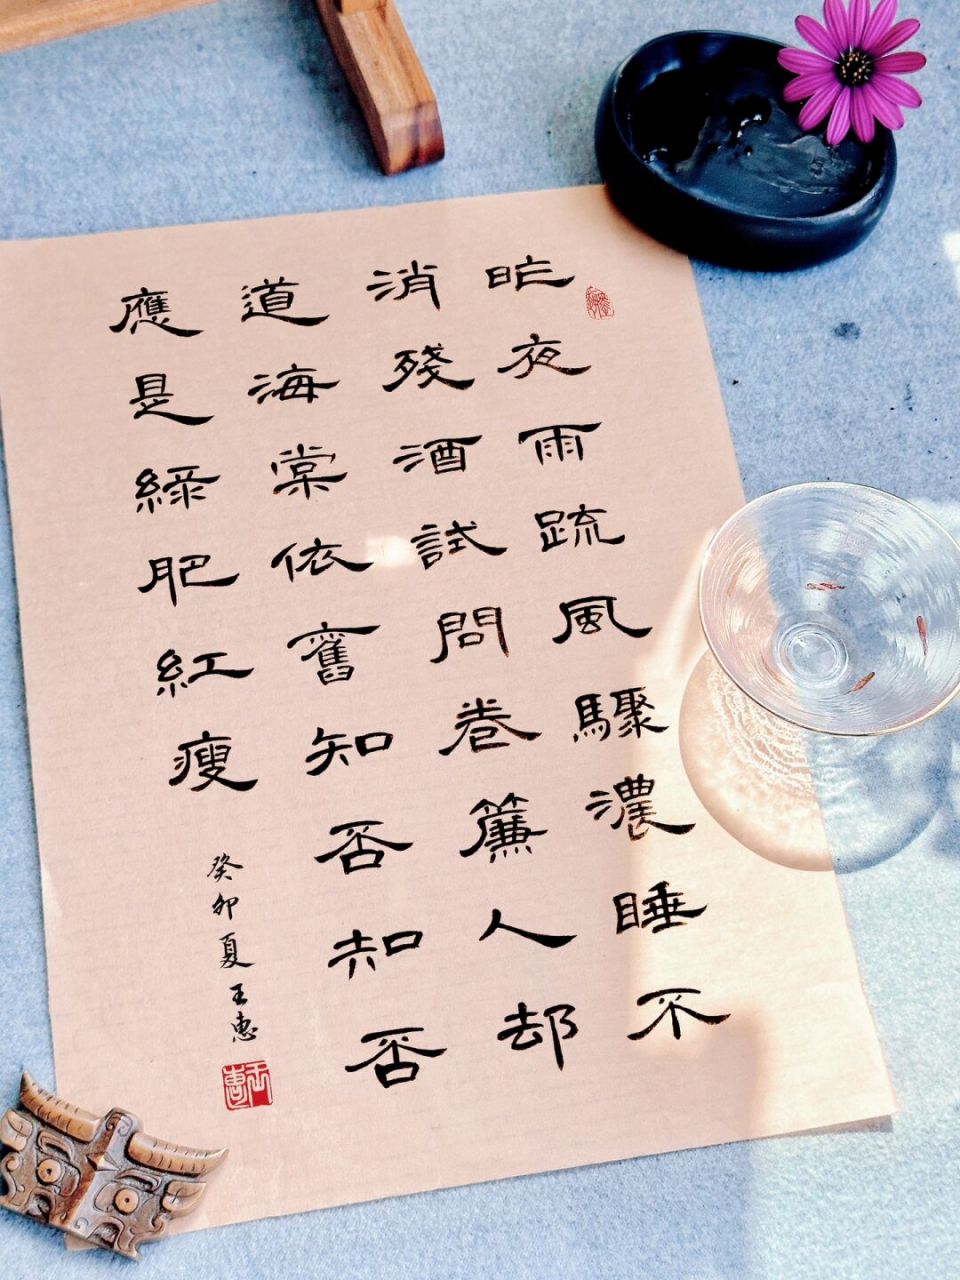 昨夜雨疏風驟濃睡不
消殘酒試問卷簾人却
道海棠依舊知否知否
應是綠肥紅瘦
癸卯夏王惠